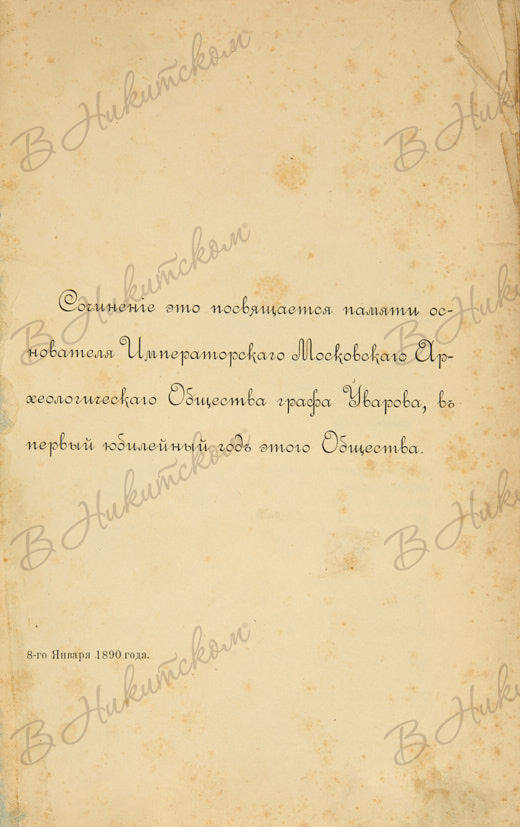 Сочиненіе это посвящается памяти ос-
нователя Императорскаго Московскаго Ар-
хеологическаго Общества графа Уварова, въ
первый юбилейный годъ этого Общества.
8-го Января 1890 года.
В Никитском
В Никитском
В Никитском
В Никитском
В Никитском
В Никитском
В Никитском
В Никитском